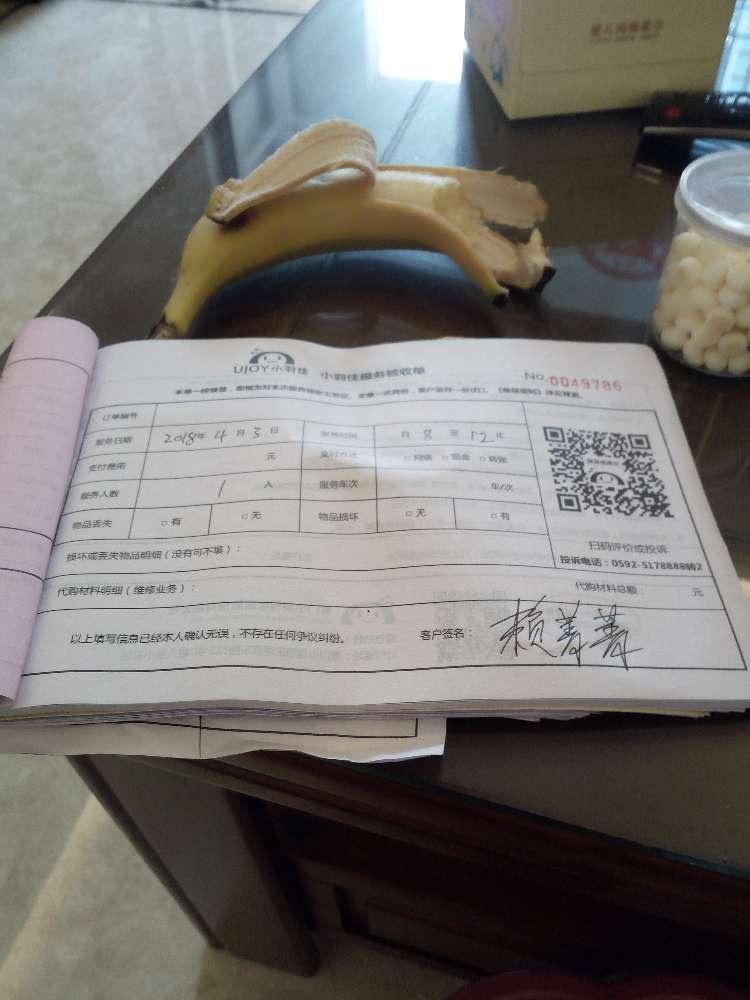 UJOY小羽佳 小羽佳服务验收单 NO. 0049786
订单编号
服务日期 2018年 4 月 3 日 服务时间 自 8 至 12 止
支付费用 元 支付方式 □ 网络 □ 现金 □ 转账
服务人数 1 人 服务车次 车/次
物品丢失 □ 有 □ 无 物品损坏 □ 无 □ 有
扫码评价或投诉
投诉电话：0592-5178888转2
损坏或丢失物品明细（没有可不填）：
代购材料明细（维修业务）： 代购材料总额： 元
以上填写信息已经本人确认无误，不存在任何争议纠纷。 客户签名： 赖菁菁